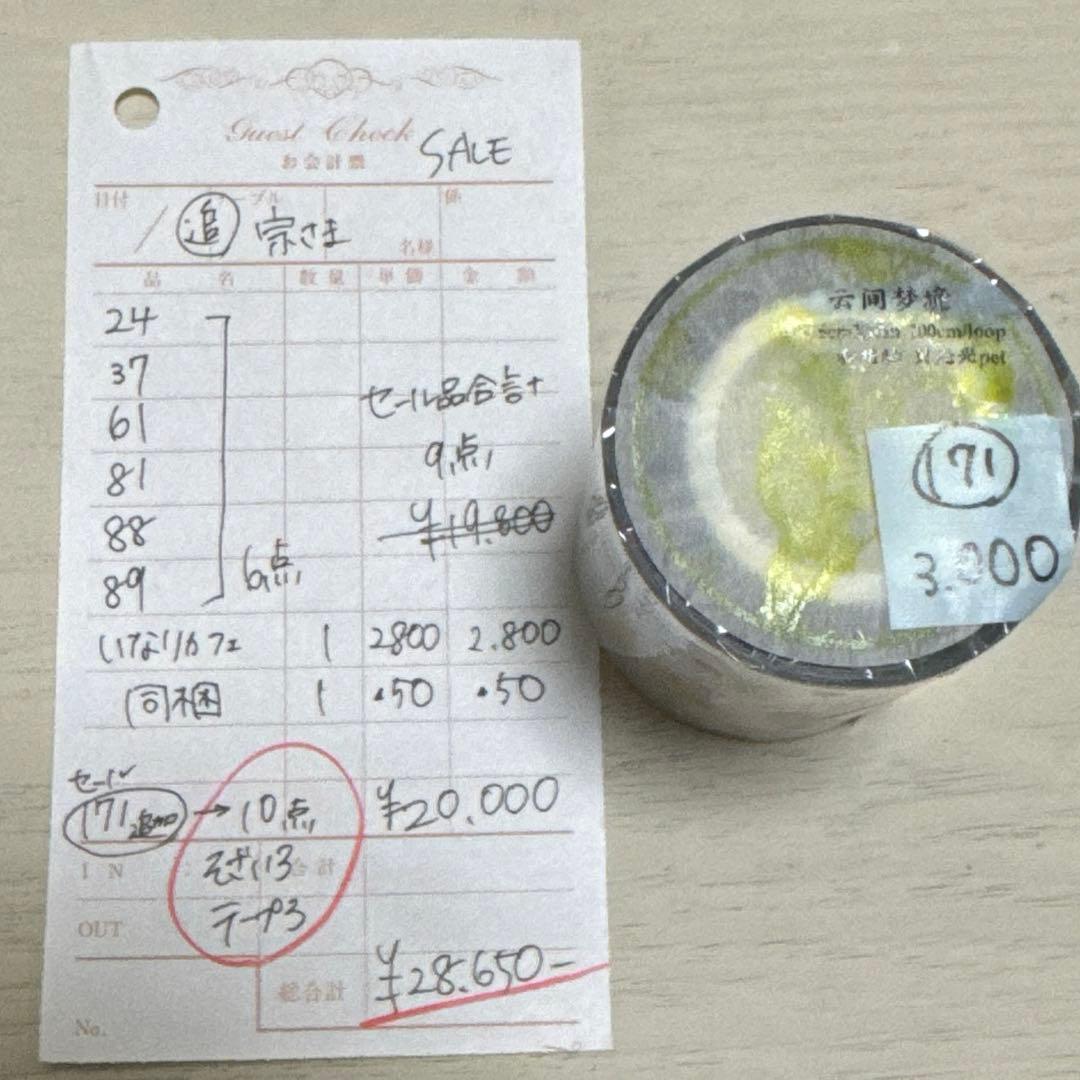 Guest Check
お会計票
SALE
日付
係
/ 追 宗さま
名様
品 名 数量 単価 金 額
24
37
セール品合計
61
9点
81
88
¥19.800
89
6点
いなりカフェ 1 2800 2.800
同梱 1 ・50 ・50
セール
171 追加 → 10点 ¥20.000
IN : そざい3 合計
OUT テープ3
総合計 ¥28.650-
No.
云间梦旅
100cm/loop
pet
171
3.000